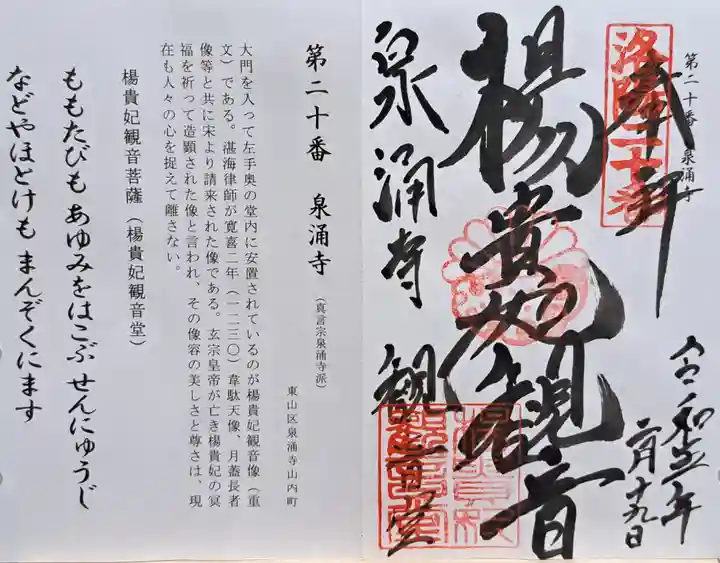 第二十番 泉涌寺
奉拝
洛陽二十番
令和五年
二月十九日
楊貴妃観音
泉涌寺 観音堂
第二十番 泉涌寺（真言宗泉涌寺派）
東山区泉涌寺山内町
大門を入って左手奥の堂内に安置されているのが楊貴妃観音像（重
文）である。湛海律師が寛喜二年（一二三〇）韋駄天像、月蓋長者
像等と共に宋より請来された像である。玄宗皇帝が亡き楊貴妃の冥
福を祈って造顕された像と言われ、その像容の美しさと尊さは、現
在も人々の心を捉えて離さない。
楊貴妃観音菩薩（楊貴妃観音堂）
ももたびも あゆみをはこぶ せんにゅうじ
などやほとけも まんぞくにます